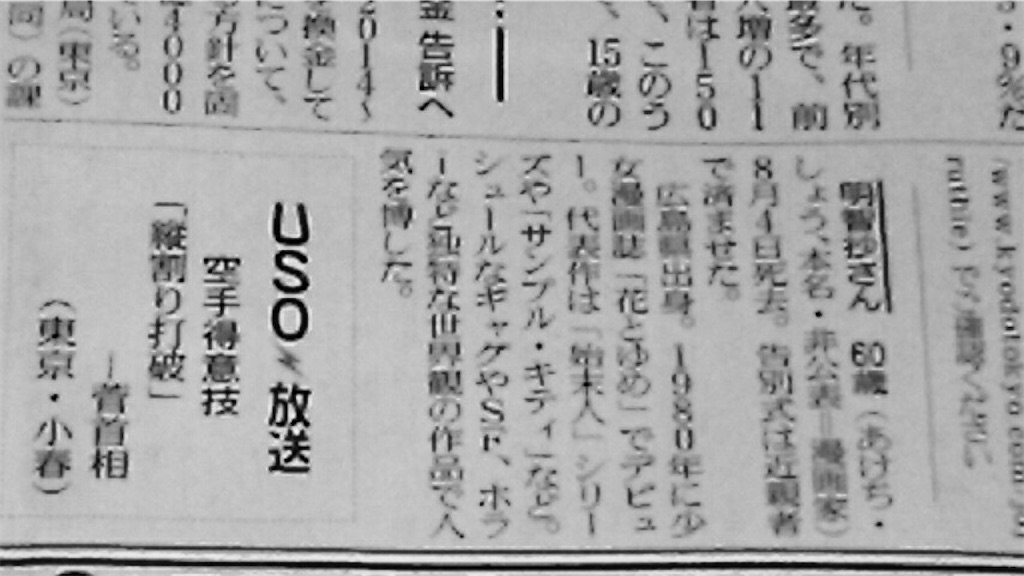 www.kyodotokyo.com
年代別
最多で、前
大増の11
者は150
このう
15歳の
金 告訴へ
2014〜
を換金して
について、
方針を固
4000
いる。
局(東京)
同)の課
明智抄さん 60歳(あけち・
しょう、本名・非公表=漫画家)
8月4日死去。告別式は近親者
で済ませた。
広島県出身。1980年に少
女漫画誌「花とゆめ」でデビュ
ー。代表作は「始末人」シリー
ズや「サンプル・キティ」など。
シュールなギャグやSF、ホラ
ーなど独特な世界観の作品で人
気を博した。
USO放送
空手得意技
「縦割り打破」
―菅首相
(東京・小春)